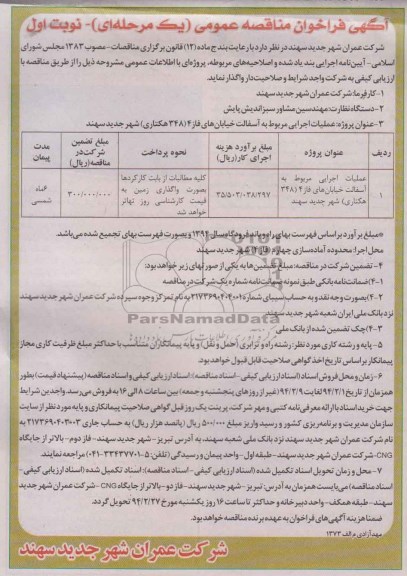 آگهی فراخوان مناقصه عمومی (یک مرحله‌ای)- نوبت اول
شرکت عمران شهر جدید سهند در نظر دارد با رعایت بند ج ماده (۱۳) قانون برگزاری مناقصات - مصوب ۱۳۸۳ مجلس شورای
اسلامی - آیین‌نامه اجرایی بند یاد شده و اصلاحیه‌های مربوطه، پروژه‌ای با اطلاعات عمومی مشروحه ذیل را از طریق مناقصه با
ارزیابی کیفی به شرکت واجد شرایط و صلاحیت‌دار واگذار نماید.
۱-کارفرما: شرکت عمران شهر جدید سهند
۲-دستگاه نظارت: مهندسین مشاور سبز اندیش پایش
۳-عنوان پروژه: عملیات اجرایی مربوط به آسفالت خیابان‌های فاز ۴ (۳۴۸ هکتاری) شهر جدید سهند
ردیف عنوان پروژه مبلغ برآورد هزینه اجرای کار (ریال) نحوه پرداخت مبلغ تضمین شرکت در مناقصه (ریال) مدت پیمان
۱ عملیات اجرایی مربوط به آسفالت خیابان‌های فاز ۴ (۳۴۸ هکتاری) شهر جدید سهند ۳۵/۵۰۳/۰۳۸/۲۹۷ کلیه مطالبات از بابت کارکردها بصورت واگذاری زمین به قیمت کارشناسی روز تهاتر خواهد شد ۳۰۰/۰۰۰/۰۰۰ ۶ماه شمسی
*مبلغ برآورد براساس فهرست بهای راه و باند فرودگاه سال ۱۳۹۴ و بصورت فهرست بهای تجمیع شده می‌باشد.
محل اجرا: محدوده آماده‌سازی چهارم (فاز ۴) شهر جدید سهند
۴- تضمین شرکت در مناقصه: مبلغ تضمین‌ها به یکی از صورتهای زیر خواهد بود:
۴-۱) ضمانت‌نامه بانکی طبق نمونه ضمانت‌نامه شماره یک شرکت در مناقصه
۴-۲) بصورت وجه نقد و به حساب سیبای شماره ۲۱۷۳۶۹۰۴۰۴۰۰۱ به نام تمرکز وجوه سپرده شرکت عمران شهر جدید سهند
نزد بانک ملی ایران شعبه شهر جدید سهند
۴-۳) چک تضمین شده از بانک ملی
۵- پایه و رشته کاری مورد نظر: رشته راه و ترابری (حمل و نقل) و پایه پیمانکاران متناسب با حداکثر مبلغ ظرفیت کاری مجاز
پیمانکار بر اساس تاریخ اخذ گواهی صلاحیت قابل قبول خواهد بود.
۶- زمان و محل فروش اسناد (اسناد ارزیابی کیفی - اسناد مناقصه): اسناد ارزیابی کیفی و اسناد مناقصه (پیشنهاد قیمت) بطور
همزمان از تاریخ ۹۴/۲/۱ لغایت ۹۴/۲/۹ (غیر از روزهای پنجشنبه و جمعه) بین ساعات ۸ الی ۱۶ به فروش می‌رسد. واجدین شرایط
جهت خرید اسناد با ارائه معرفی‌نامه کتبی و مهر شرکت، پرینت یک روز قبل گواهی صلاحیت پیمانکاری و پایه مورد نظر از سایت
سازمان مدیریت و برنامه‌ریزی کشور و رسید واریز مبلغ ۵۰۰/۰۰۰ ریال (پانصد هزار ریال) به حساب جاری ۲۱۷۳۶۹۰۴۰۳۰۰۳
به نام شرکت عمران شهر جدید سهند نزد بانک ملی شعبه سهند، به آدرس تبریز - شهر جدید سهند - فاز دوم - بالاتر از جایگاه
CNG-شرکت عمران شهر جدید سهند - طبقه اول - واحد پیمان و رسیدگی (تلفن: ۵-۳۳۴۳۷۷۰۱-۰۴۱) مراجعه نمایند.
۷- محل و زمان تحویل اسناد تکمیل شده (اسناد ارزیابی کیفی - اسناد مناقصه): اسناد تکمیل شده (اسناد ارزیابی کیفی -
اسناد مناقصه) می‌بایست همزمان به آدرس تبریز - شهر جدید سهند - فاز دو - بالاتر از جایگاه CNG - شرکت عمران شهر جدید
سهند - طبقه همکف - واحد دبیرخانه و حداکثر تا ساعت ۱۶ روز یکشنبه مورخ ۹۴/۲/۲۷ تحویل گردد.
ضمنا هزینه آگهی‌های فراخوان به عهده برنده مناقصه خواهد بود.
مهد آزادی م.الف ۱۳۷۳
شرکت عمران شهر جدید سهند
ParsNamadData